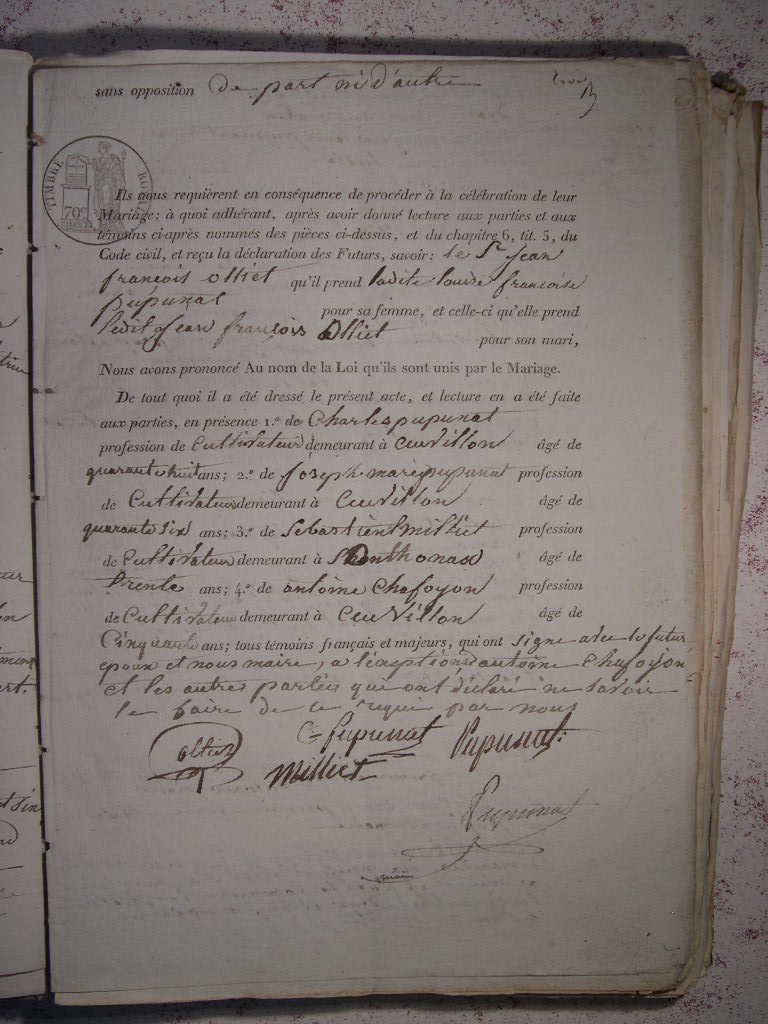 sans opposition de part ni d'autre
TIMBRE ROYAL
70c
Ils nous requièrent en conséquence de procéder à la célébration de leur
Mariage; à quoi adhérant, après avoir donné lecture aux parties et aux
témoins ci-après nommés des pièces ci-dessus, et du chapitre 6, tit. 5, du
Code civil, et reçu la déclaration des Futurs, savoir: le Sr jean
françois olliet qu'il prend ladite louise françoise
pupunat pour sa femme, et celle-ci qu'elle prend
ledit jean françois Olliet pour son mari,
Nous avons prononcé Au nom de la Loi qu'ils sont unis par le Mariage.
De tout quoi il a été dressé le présent acte, et lecture en a été faite
aux parties, en présence 1.º de Charles pupunat
profession de Cultivateur demeurant à Cuvillon âgé de
quarante huit ans; 2.º de joseph marie pupunat profession
de Cultivateur demeurant à Ceuvillon âgé de
quarante six ans; 3.º de Sebastien Milliet profession
de Cultivateur demeurant à âgé de
trente ans; 4.º de antoine Chafoyon profession
de Cultivateur demeurant à Ceuvillon âgé de
Cinquante ans; tous témoins français et majeurs, qui ont signé avec le futur
epoux et nous maire, a l'exeption d'antoine Chafoyon
et les autres parties qui ont déclaré ne savoir
le faire de ce requi par nous
olliet C pupunat Pupunat
Milliet
Pupunat
maire